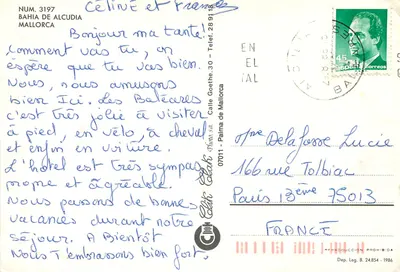 NUM. 3197
BAHIA DE ALCUDIA
MALLORCA
Céline et Francis
Bonjour ma tante!
Comment vais tu, on
espère que tu vas bien.
Nous, nous amusons
bien Ici. Les Baléares
c'est très jolie à visiter
à pied, en vélo, à cheval
et enfin en voiture.
L'hôtel est très sympa,
propre et agréable.
Nous passons de bonnes
vacances durant notre
séjour. A Bientôt
Nous T'embrassons bien fort.
Click Clack
Calle Goethe. 30 - Telef. 28 91
07011 - Palma de Mallorca
EN
EL
IAL
45
CORREOS
Mme Delafosse Lucie
166 rue Tolbiac
Paris 13ème 75013
FRANCE
Dep. Leg. B. 24.854 - 1986